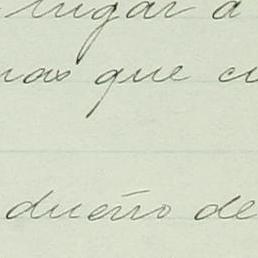 lugar a
que
dueño de